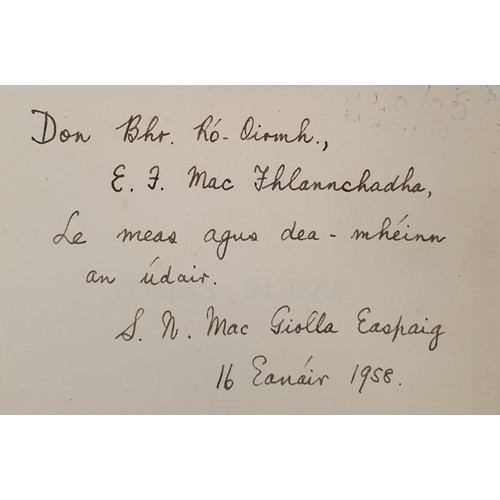 Don Bhr. Ró-Oirmh.,
E. F. Mac Fhlannchadha,
Le meas agus dea-mhéinn
an údair.
S. N. Mac Giolla Easpaig
16 Eanáir 1958.